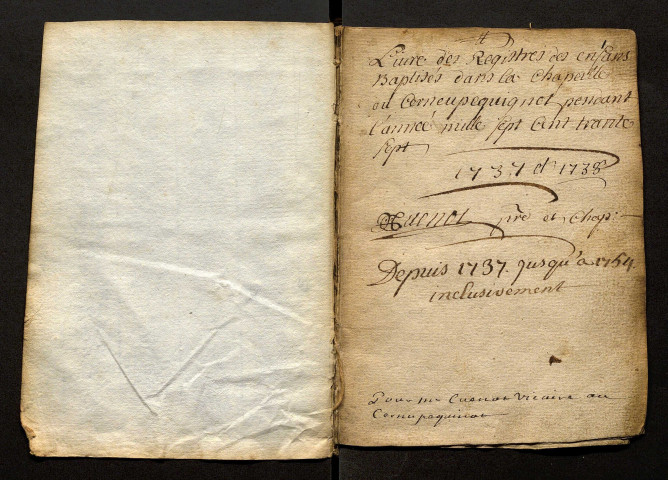 Livre des Registres des enfans
Baptisés dans la Chapelle
au Corneupequignot pendant
l'année mille sept cent trante
sept
1737 et 1738
Cuenot ptre et Chap:
Depuis 1737. jusqu'a 1754.
inclusivement
Pour mr Cuenot vicaire au
Corneupequinot